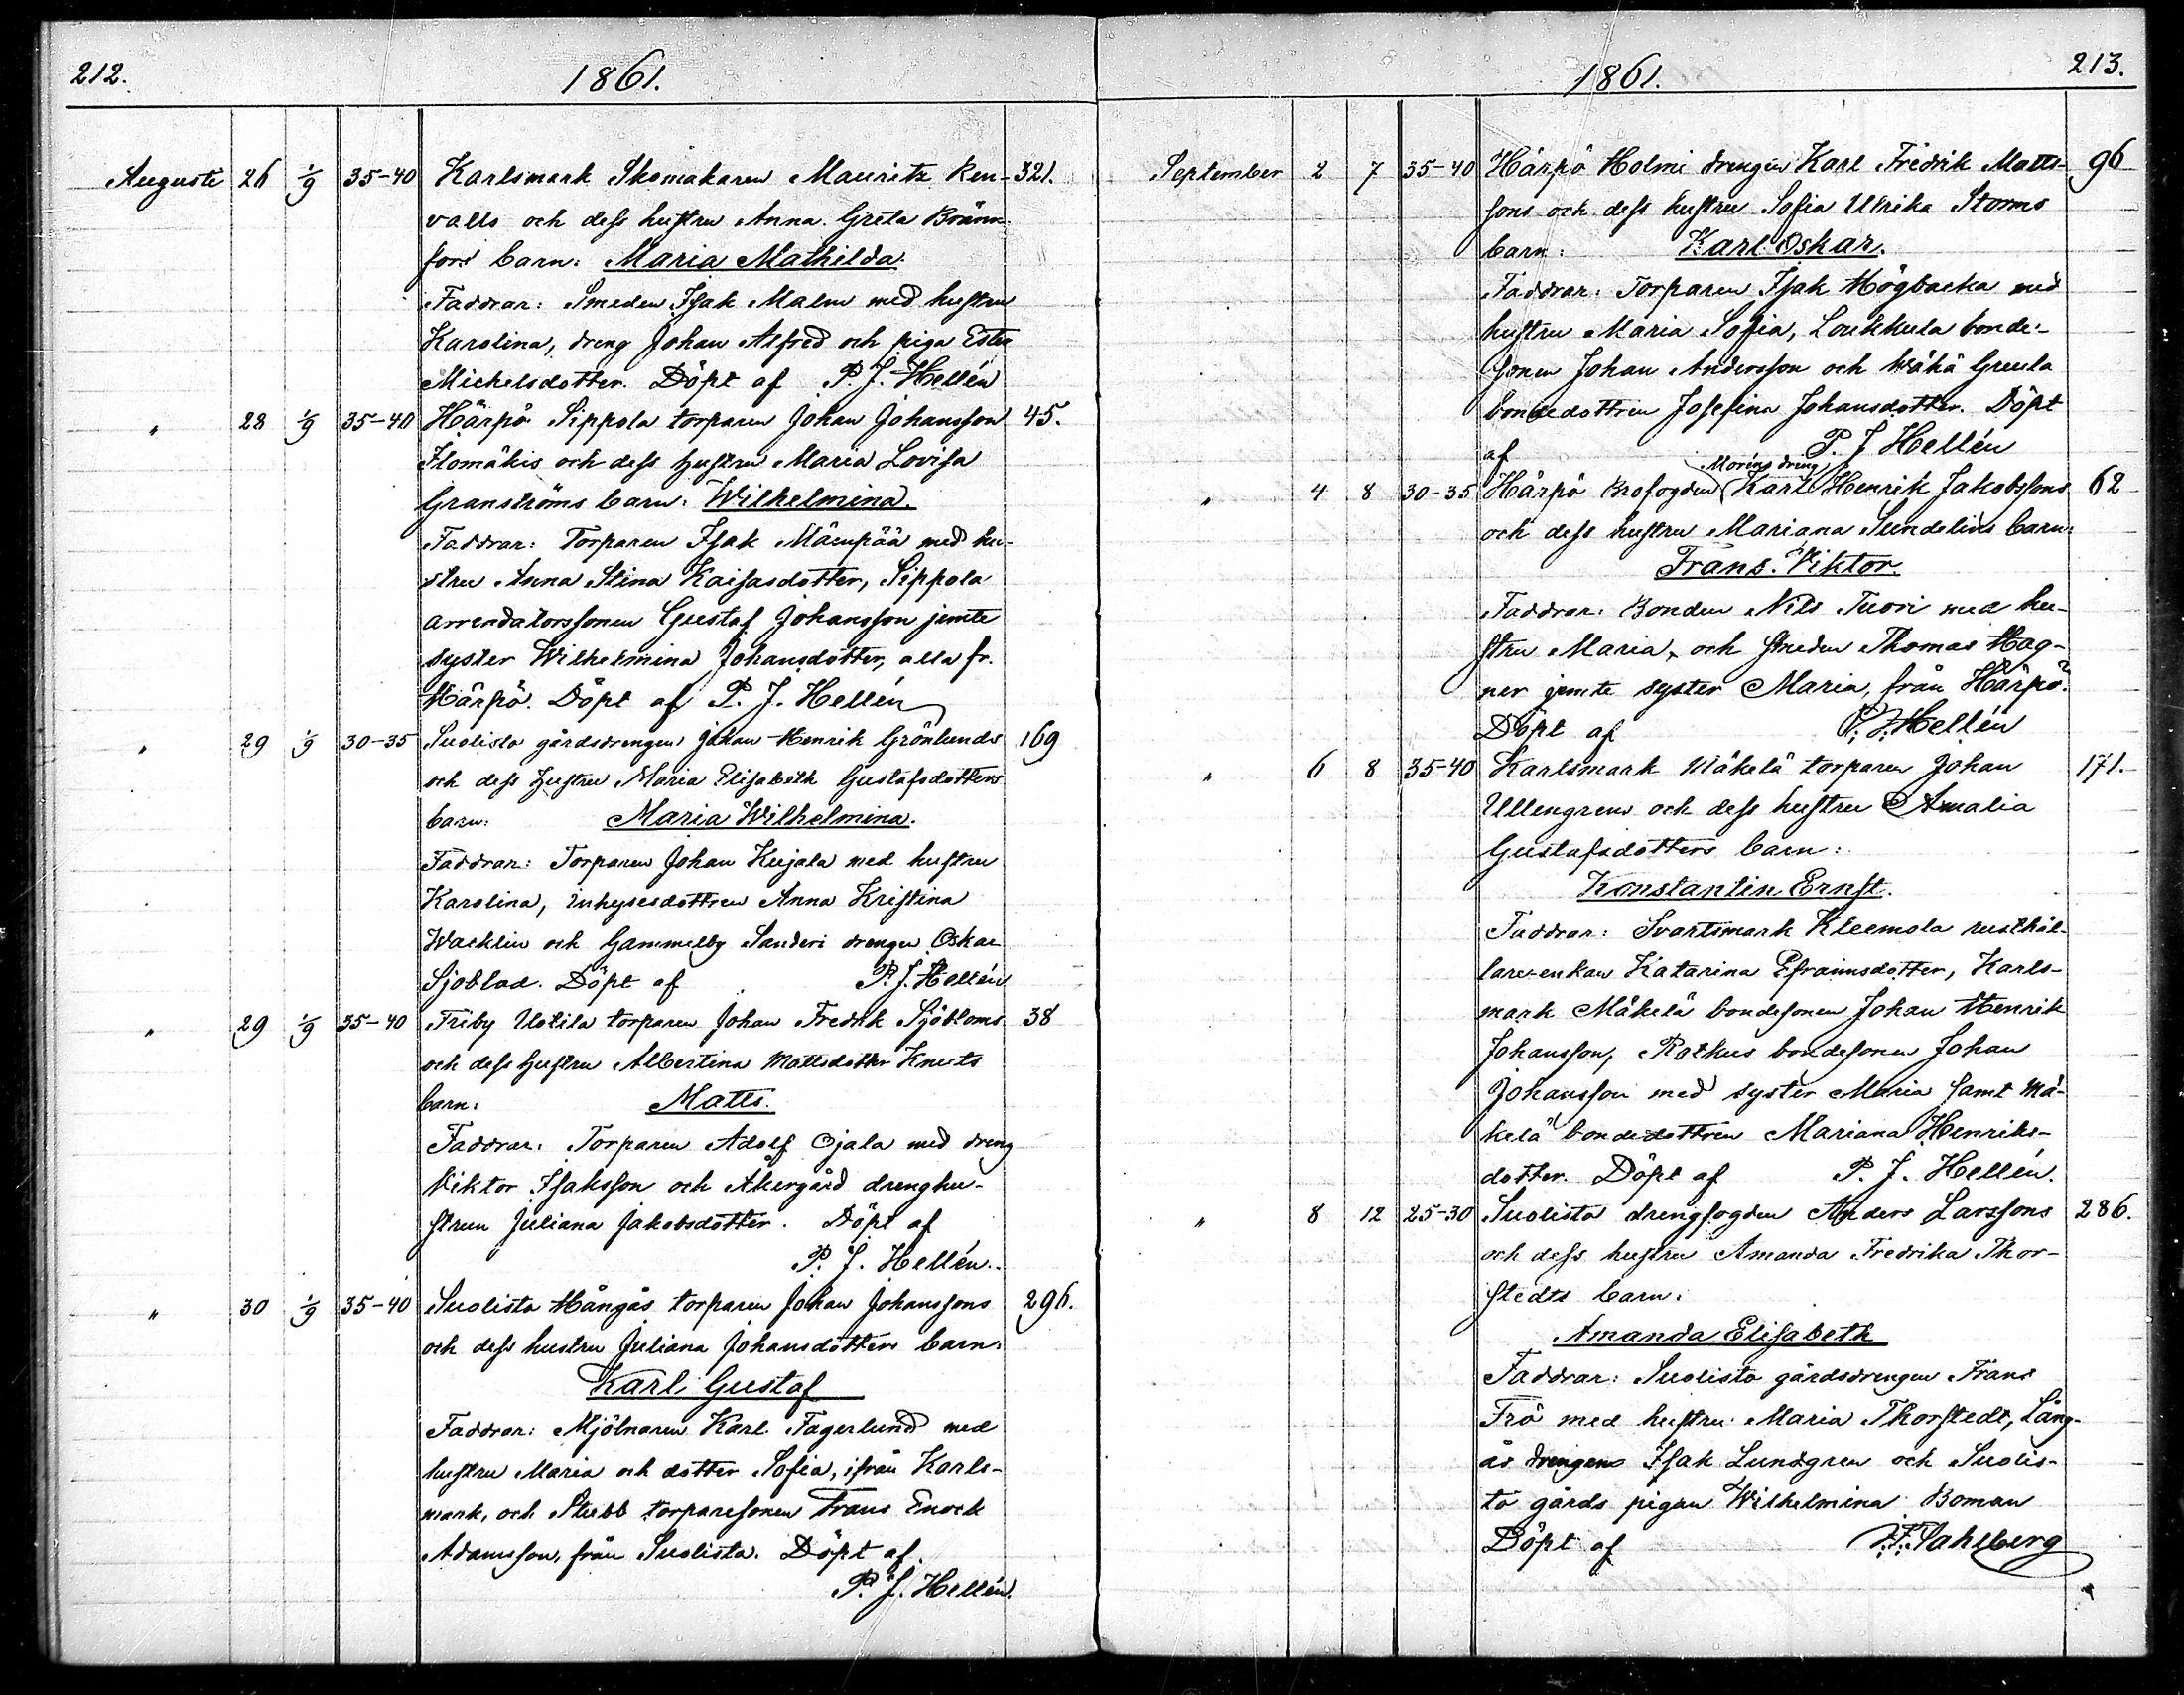 212.
1861.
Augusti 26 1/9 35-40 Karlsmark Skomakaren Mauritz Ren- 321.
valls och dess hustru Anna Greta Bränn-
fors barn: Maria Mathilda.
Faddrar: Smeden Isak Malm med hustru
Karolina, dreng Johan Alfred och piga Ester
Michelsdotter. Döpt af P. J. Hellén
" 28 1/9 35-40 Härpö Sippola torparen Johan Johansson 45.
Ilomäkis och dess hustru Maria Lovisa
Granströms barn: Wilhelmina.
Faddrar: Torparen Isak Mäenpää med hu-
stru Anna Stina Kaisasdotter, Sippola
arrendatorssonen Gustaf Johansson jemte
syster Wilhelmina Johansdotter, alla fr.
Härpö. Döpt af P. J. Hellén
" 29 1/9 30-35 Suolisto gårdsdrengen Johan Henrik Grönlunds 169
och dess hustru Maria Elisabeth Gustafsdotters
barn: Maria Wilhelmina.
Faddrar: Torparen Johan Kujala med hustru
Karolina, inhysesdottren Anna Kristina
Wacklin och Gammelby Sanderi drengen Oskar
Sjöblad. Döpt af P. J. Hellén
" 29 1/9 35-40 Friby Uotila torparen Johan Fredrik Sjöbloms 38
och dess hustru Albertina Mattsdotter Knuts
barn: Matts.
Faddrar: Torparen Adolf Ojala med dreng
Viktor Isaksson och Åkergård drenghu-
strun Juliana Jakobsdotter. Döpt af
P. J. Hellén.
" 30 1/9 35-40 Suolisto Hångås torparen Johan Johanssons 296.
och dess hustru Juliana Johansdotters barn:
Karl Gustaf
Faddrar: Mjölnaren Karl Fagerlund med
hustru Maria och dotter Sofia, ifrån Karls-
mark, och Stubb torparesonen Frans Enock
Adamsson, från Suolisto. Döpt af
P. J. Hellén.
1861.
213.
September 2 7 35-40 Härpö Holmi drengen Karl Fredrik Matts- 96
sons och dess hustru Sofia Ulrika Storms
barn: Karl Oskar.
Faddrar: Torparen Isak Högbacka med
hustru Maria Sofia, Loukkula bonde-
sonen Johan Andersson och Wähä Greula
bondedottren Josefina Johansdotter. Döpt
af P. J Hellén
Moréns dreng
" 4 8 30-35 Härpö Brofogden Karl Henrik Jakobssons 62
och dess hustru Mariana Sundelins barn:
Frans Viktor.
Faddrar: Bonden Nils Tuori med hu-
stru Maria, och smeden Thomas Hag-
ner jemte syster Maria, från Härpö.
Döpt af P. J. Hellén
" 6 8 35-40 Karlsmark Mäkelä torparen Johan 171.
Ullengrens och dess hustru Amalia
Gustafsdotters barn:
Konstantin Ernst.
Faddrar: Svartsmark Kleemola rusthål-
lare-enkan Katarina Efraimsdotter, Karls-
mark Mäkelä bondesonen Johan Henrik
Johansson, Rotkus bondesonen Johan
Johansson med syster Maria samt Mä-
kelä bondedottren Mariana Henriks-
dotter. Döpt af P. J. Hellén.
" 8 12 25-30 Suolisto drengfogden Anders Larssons 286.
och dess hustru Amanda Fredrika Thor-
stedts barn:
Amanda Elisabeth
Faddrar: Suolisto gårdsdrengen Frans
Frö med hustru Maria Thorstedt, Lång-
ås drengens Isak Lundgren och Suolis-
to gårds pigan Wilhelmina Boman
Döpt af F. F. Sahlberg